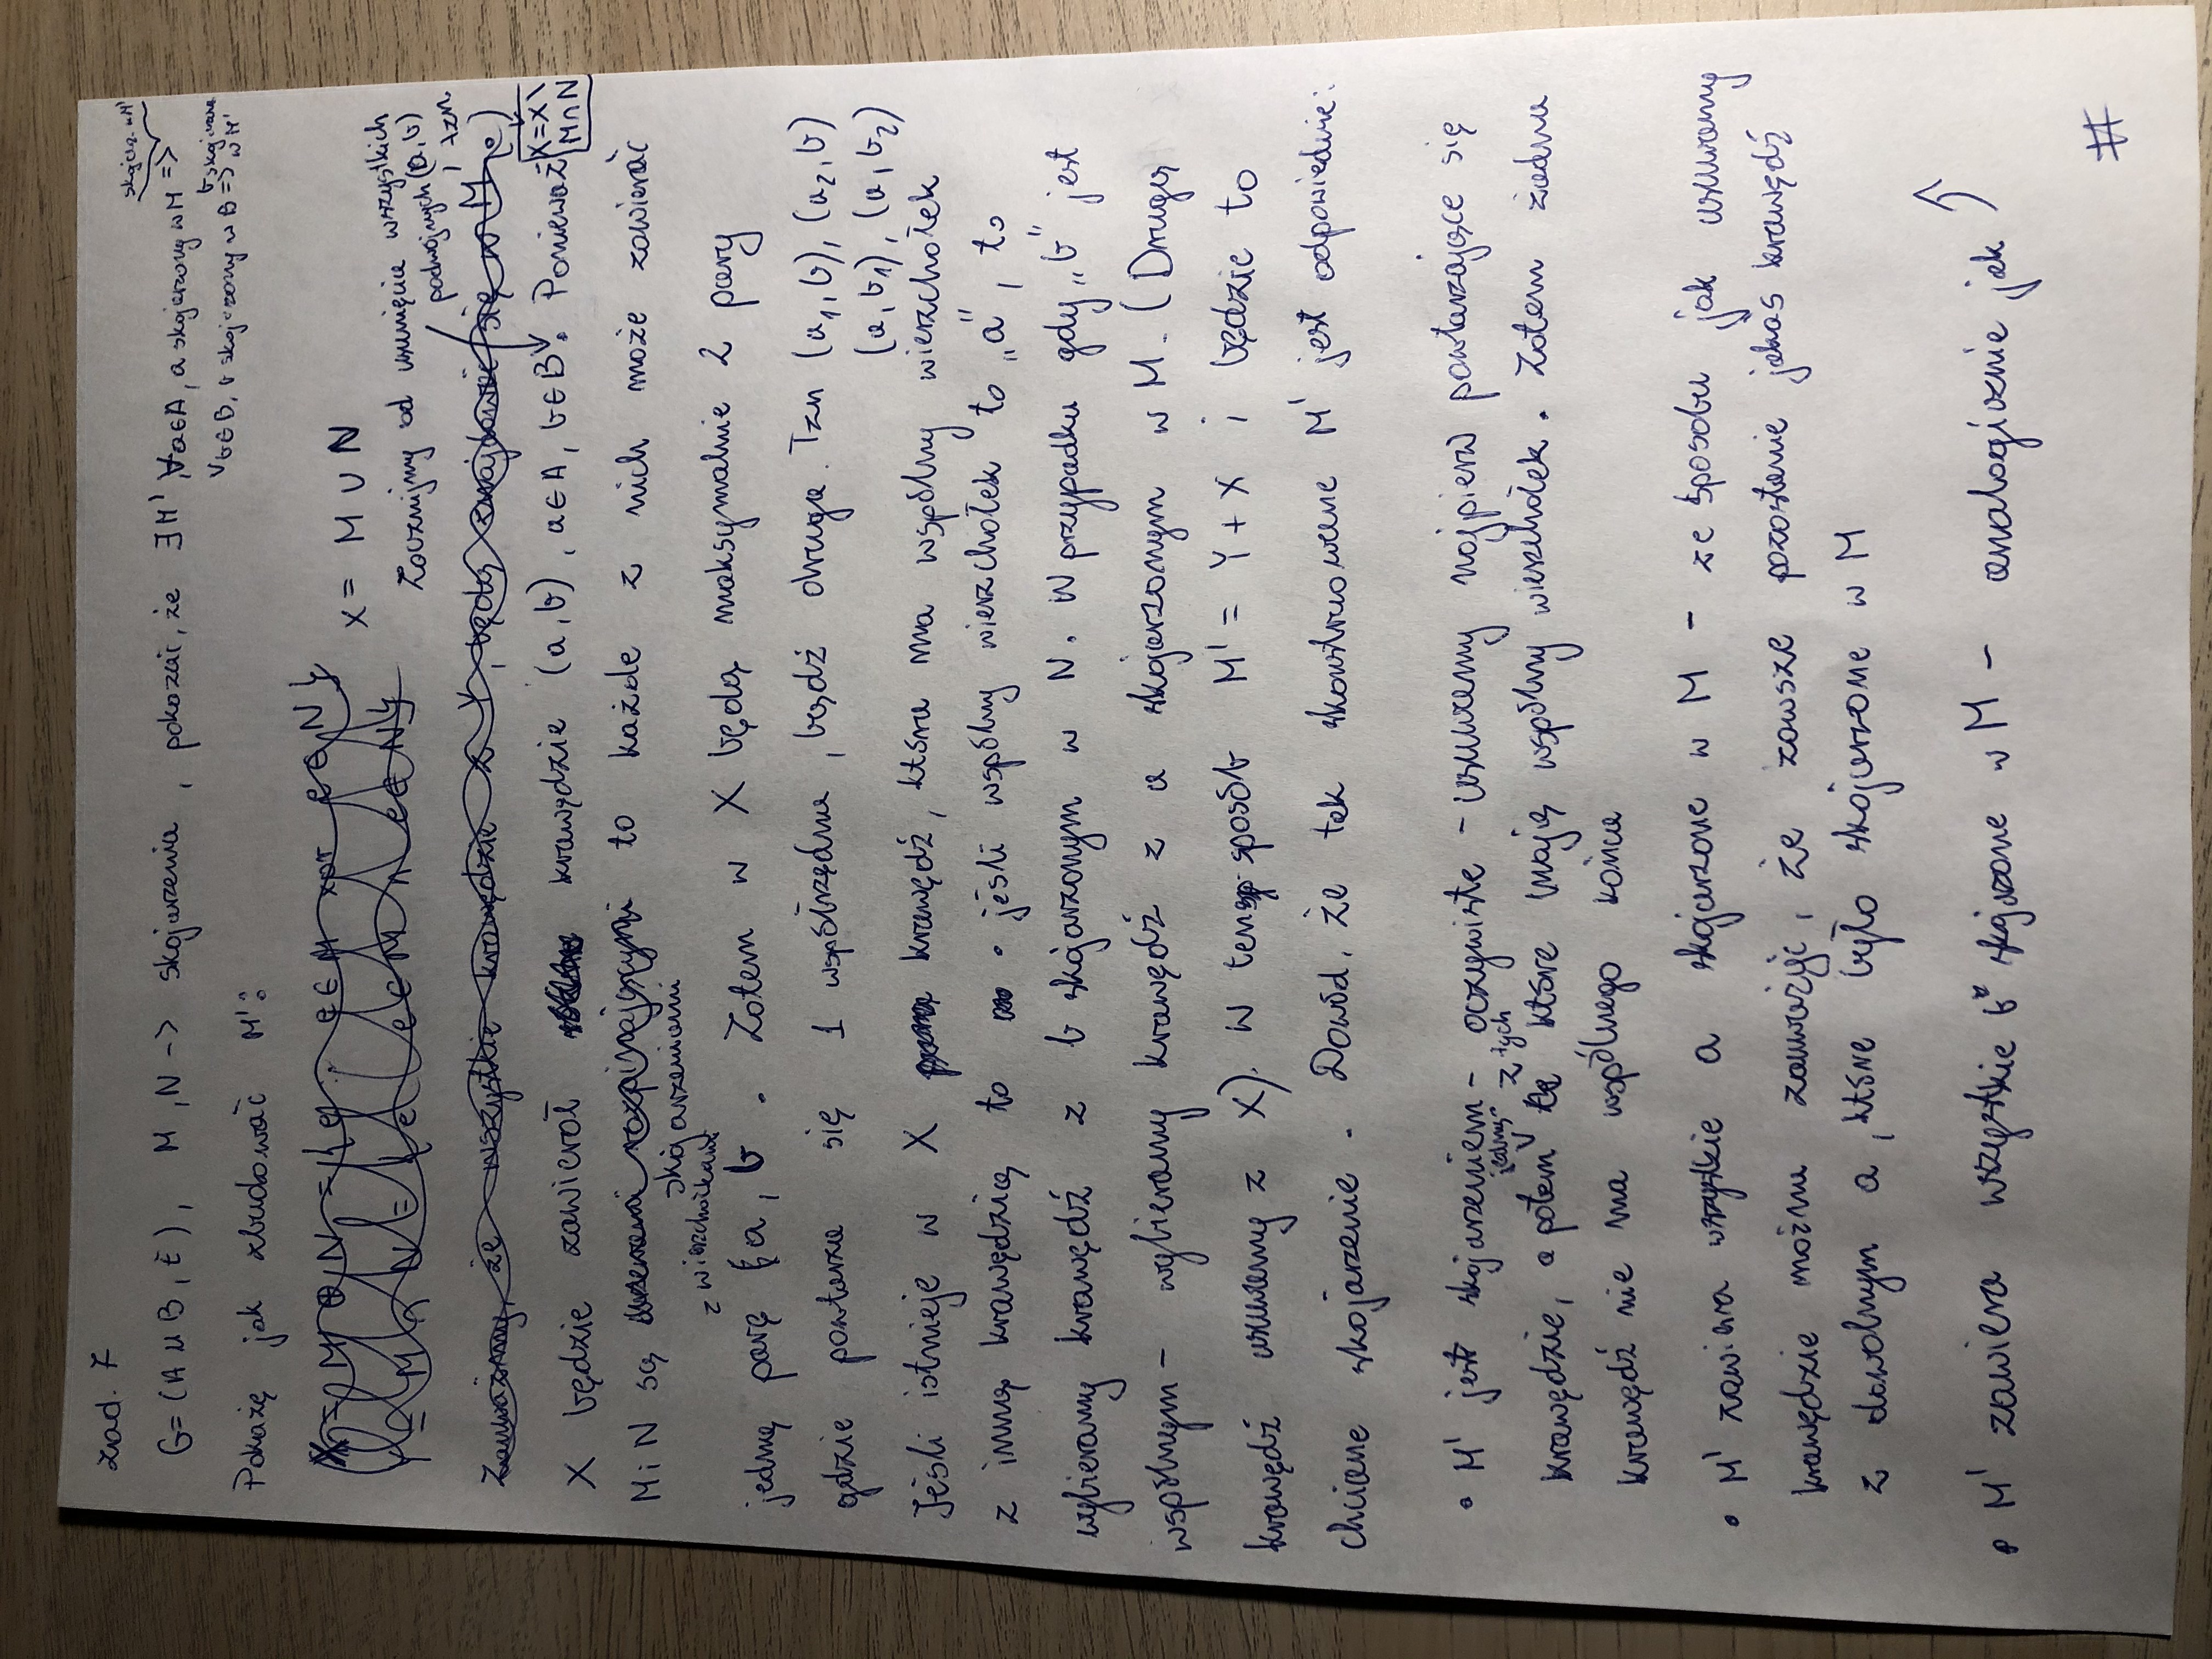 zad. 7
skojarz. w M'
G=(A ∪ B, E), M, N -> skojarzenia, pokazać, że ∃M', ∀a∈A, a skojarzony w M =>
∀b∈B, b skojarzony w B => b skojarzone w M'
Pokażę jak zbudować M':
X = M ⊕ N = { e : e ∈ M xor e ∈ N }
X = M ∪ N
Y = M ∩ N = { e : e ∈ M ∧ e ∈ N }
Zacznijmy od usunięcia wszystkich
podwójnych (a, b)
, tzn.
Zauważmy, że wszystkie krawędzie z Y, będą znajdować się w M'
X będzie zawierał krawędzie (a, b), a∈A, b∈B. Ponieważ
X = X \
M∩N
M i N są rozpinającymi to każde z nich może zawierać
skojarzeniami
z wierzchołkami
jedną parę a, b. Zatem w X będą maksymalnie 2 pary
gdzie powtarza się 1 współrzędna, bądź druga. Tzn (a₁, b), (a₂, b)
(a, b₁), (a, b₂)
Jeśli istnieje w X krawędź, która ma wspólny wierzchołek
z inną krawędzią to • jeśli wspólny wierzchołek to „a", to
wybieramy krawędź z b skojarzonym w N. W przypadku gdy „b" jest
wspólnym – wybieramy krawędź z a skojarzonym w M. (Drugą
krawędź usuwamy z X). W ten sposób M' = Y + X i będzie to
chciane skojarzenie. Dowód, że tak skonstruowane M' jest odpowiednie:
• M' jest skojarzeniem – oczywiste – usuwamy najpierw powtarzające się
jedną z tych
krawędzie, a potem te które mają wspólny wierzchołek. Zatem żadna
krawędź nie ma wspólnego końca
• M' zawiera wszystkie a skojarzone w M – ze sposobu jak usuwamy
krawędzie można zauważyć, że zawsze pozostanie jakaś krawędź
z dowolnym a, które było skojarzone w M
• M' zawiera wszystkie b skojarzone w M – analogicznie jak ↑
#